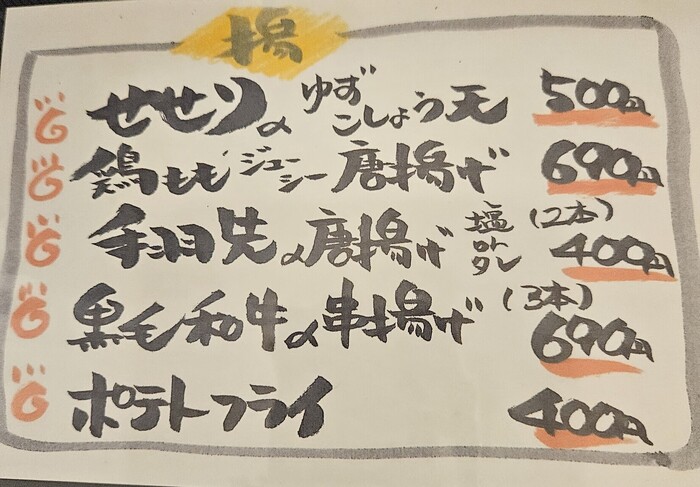 揚
せせりのゆずこしょう天 500円
鶏ももジューシー唐揚げ 690円
手羽先の唐揚げ 塩orタレ (2本) 400円
黒毛和牛の串揚げ (3本) 690円
ポテトフライ 400円